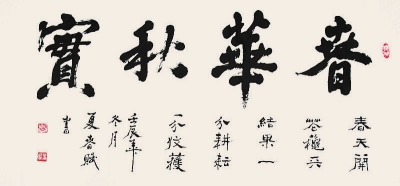 春華秋實
春天開
花穐天
結果一
分耕耘
一分收穫
壬辰年
冬月
夏春賦
書